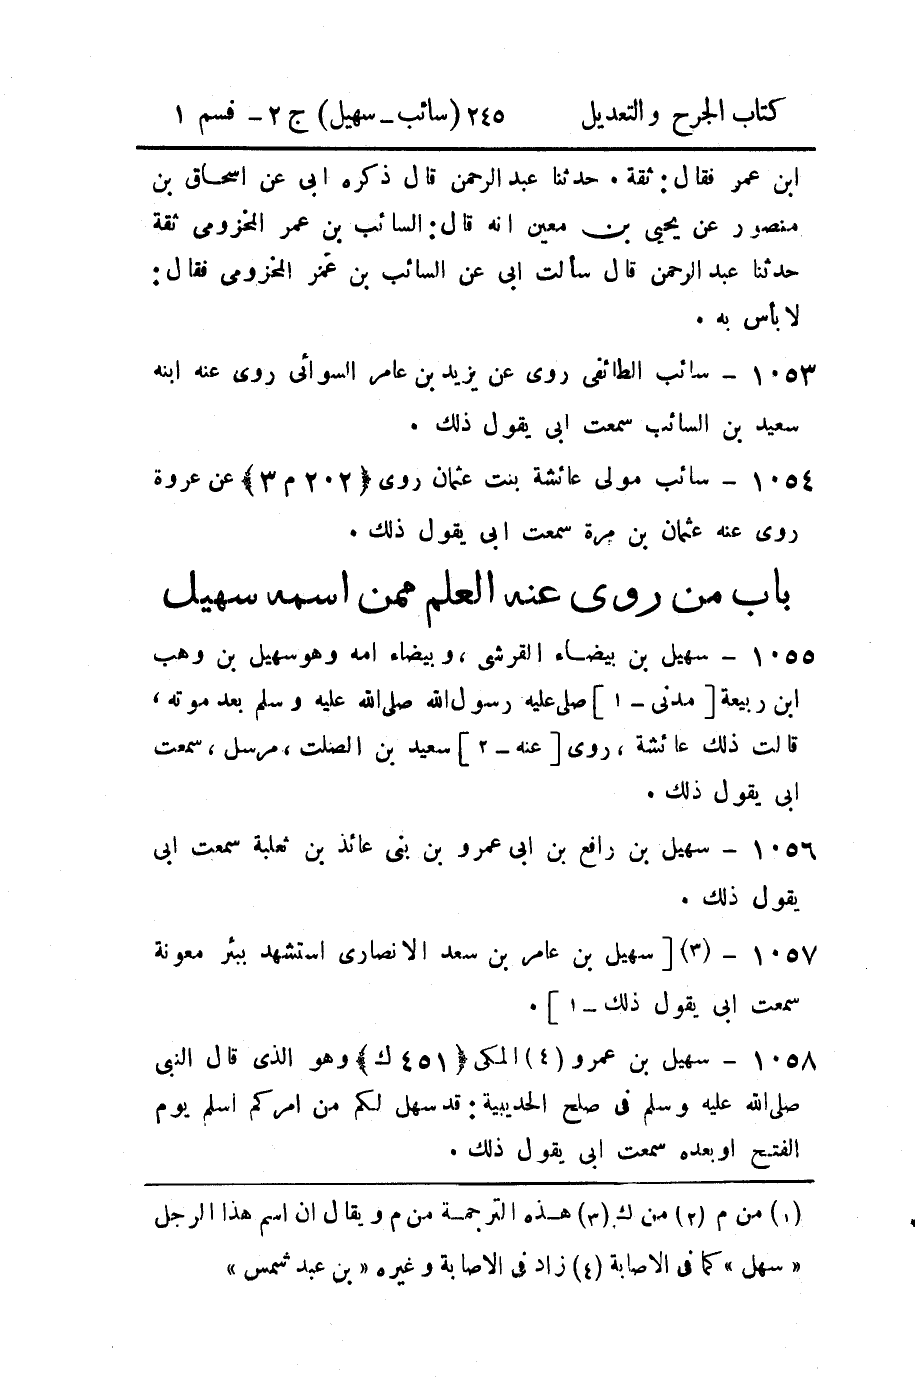 كتاب الجرح والتعديل ٢٤٥ (سائب ـ سهيل) ج ٢ - قسم ١
ابن عمر فقال: ثقة . حدثنا عبد الرحمن قال ذكره ابى عن اسحاق بن
منصور عن يحيى بن معين انه قال: السائب بن عمر المخزومى ثقة
حدثنا عبد الرحمن قال سألت ابى عن السائب بن عمر المخزومى فقال:
لا بأس به .
١٠٥٣ - سائب الطائفى روى عن يزيد بن عامر السوائى روى عنه ابنه
سعيد بن السائب سمعت ابى يقول ذلك .
١٠٥٤ - سائب مولى عائشة بنت عثمان روى ﴿٢٠٢ م ٣﴾ عن عروة
روى عنه عثمان بن مرة سمعت ابى يقول ذلك .
باب من روى عنه العلم ممن اسمه سهيل
١٠٥٥ - سهيل بن بيضاء القرشى ، وبيضاء امه وهو سهيل بن وهب
ابن ربيعة [ مدنى - ١ ] صلى عليه رسول الله صلى الله عليه وسلم بعد موته ،
قالت ذلك عائشة ، روى [ عنه - ٢ ] سعيد بن الصلت ، مرسل ، سمعت
ابى يقول ذلك .
١٠٥٦ - سهيل بن رافع بن ابى عمرو بن بنى عائذ بن ثعلبة سمعت ابى
يقول ذلك .
١٠٥٧ - (٣) [ سهيل بن عامر بن سعد الانصارى استشهد ببئر معونة
سمعت ابى يقول ذلك - ١ ] .
١٠٥٨ - سهيل بن عمرو (٤) المكى ﴿٤٥١ ك﴾ وهو الذى قال النبى
صلى الله عليه وسلم فى صلح الحديبية: قد سهل لكم من امركم اسلم يوم
الفتح او بعده سمعت ابى يقول ذلك .
(١) من م (٢) من ك (٣) هذه الترجمة من م ويقال ان اسم هذا الرجل
« سهل » كما فى الاصابة (٤) زاد فى الاصابة وغيره « بن عبد شمس »